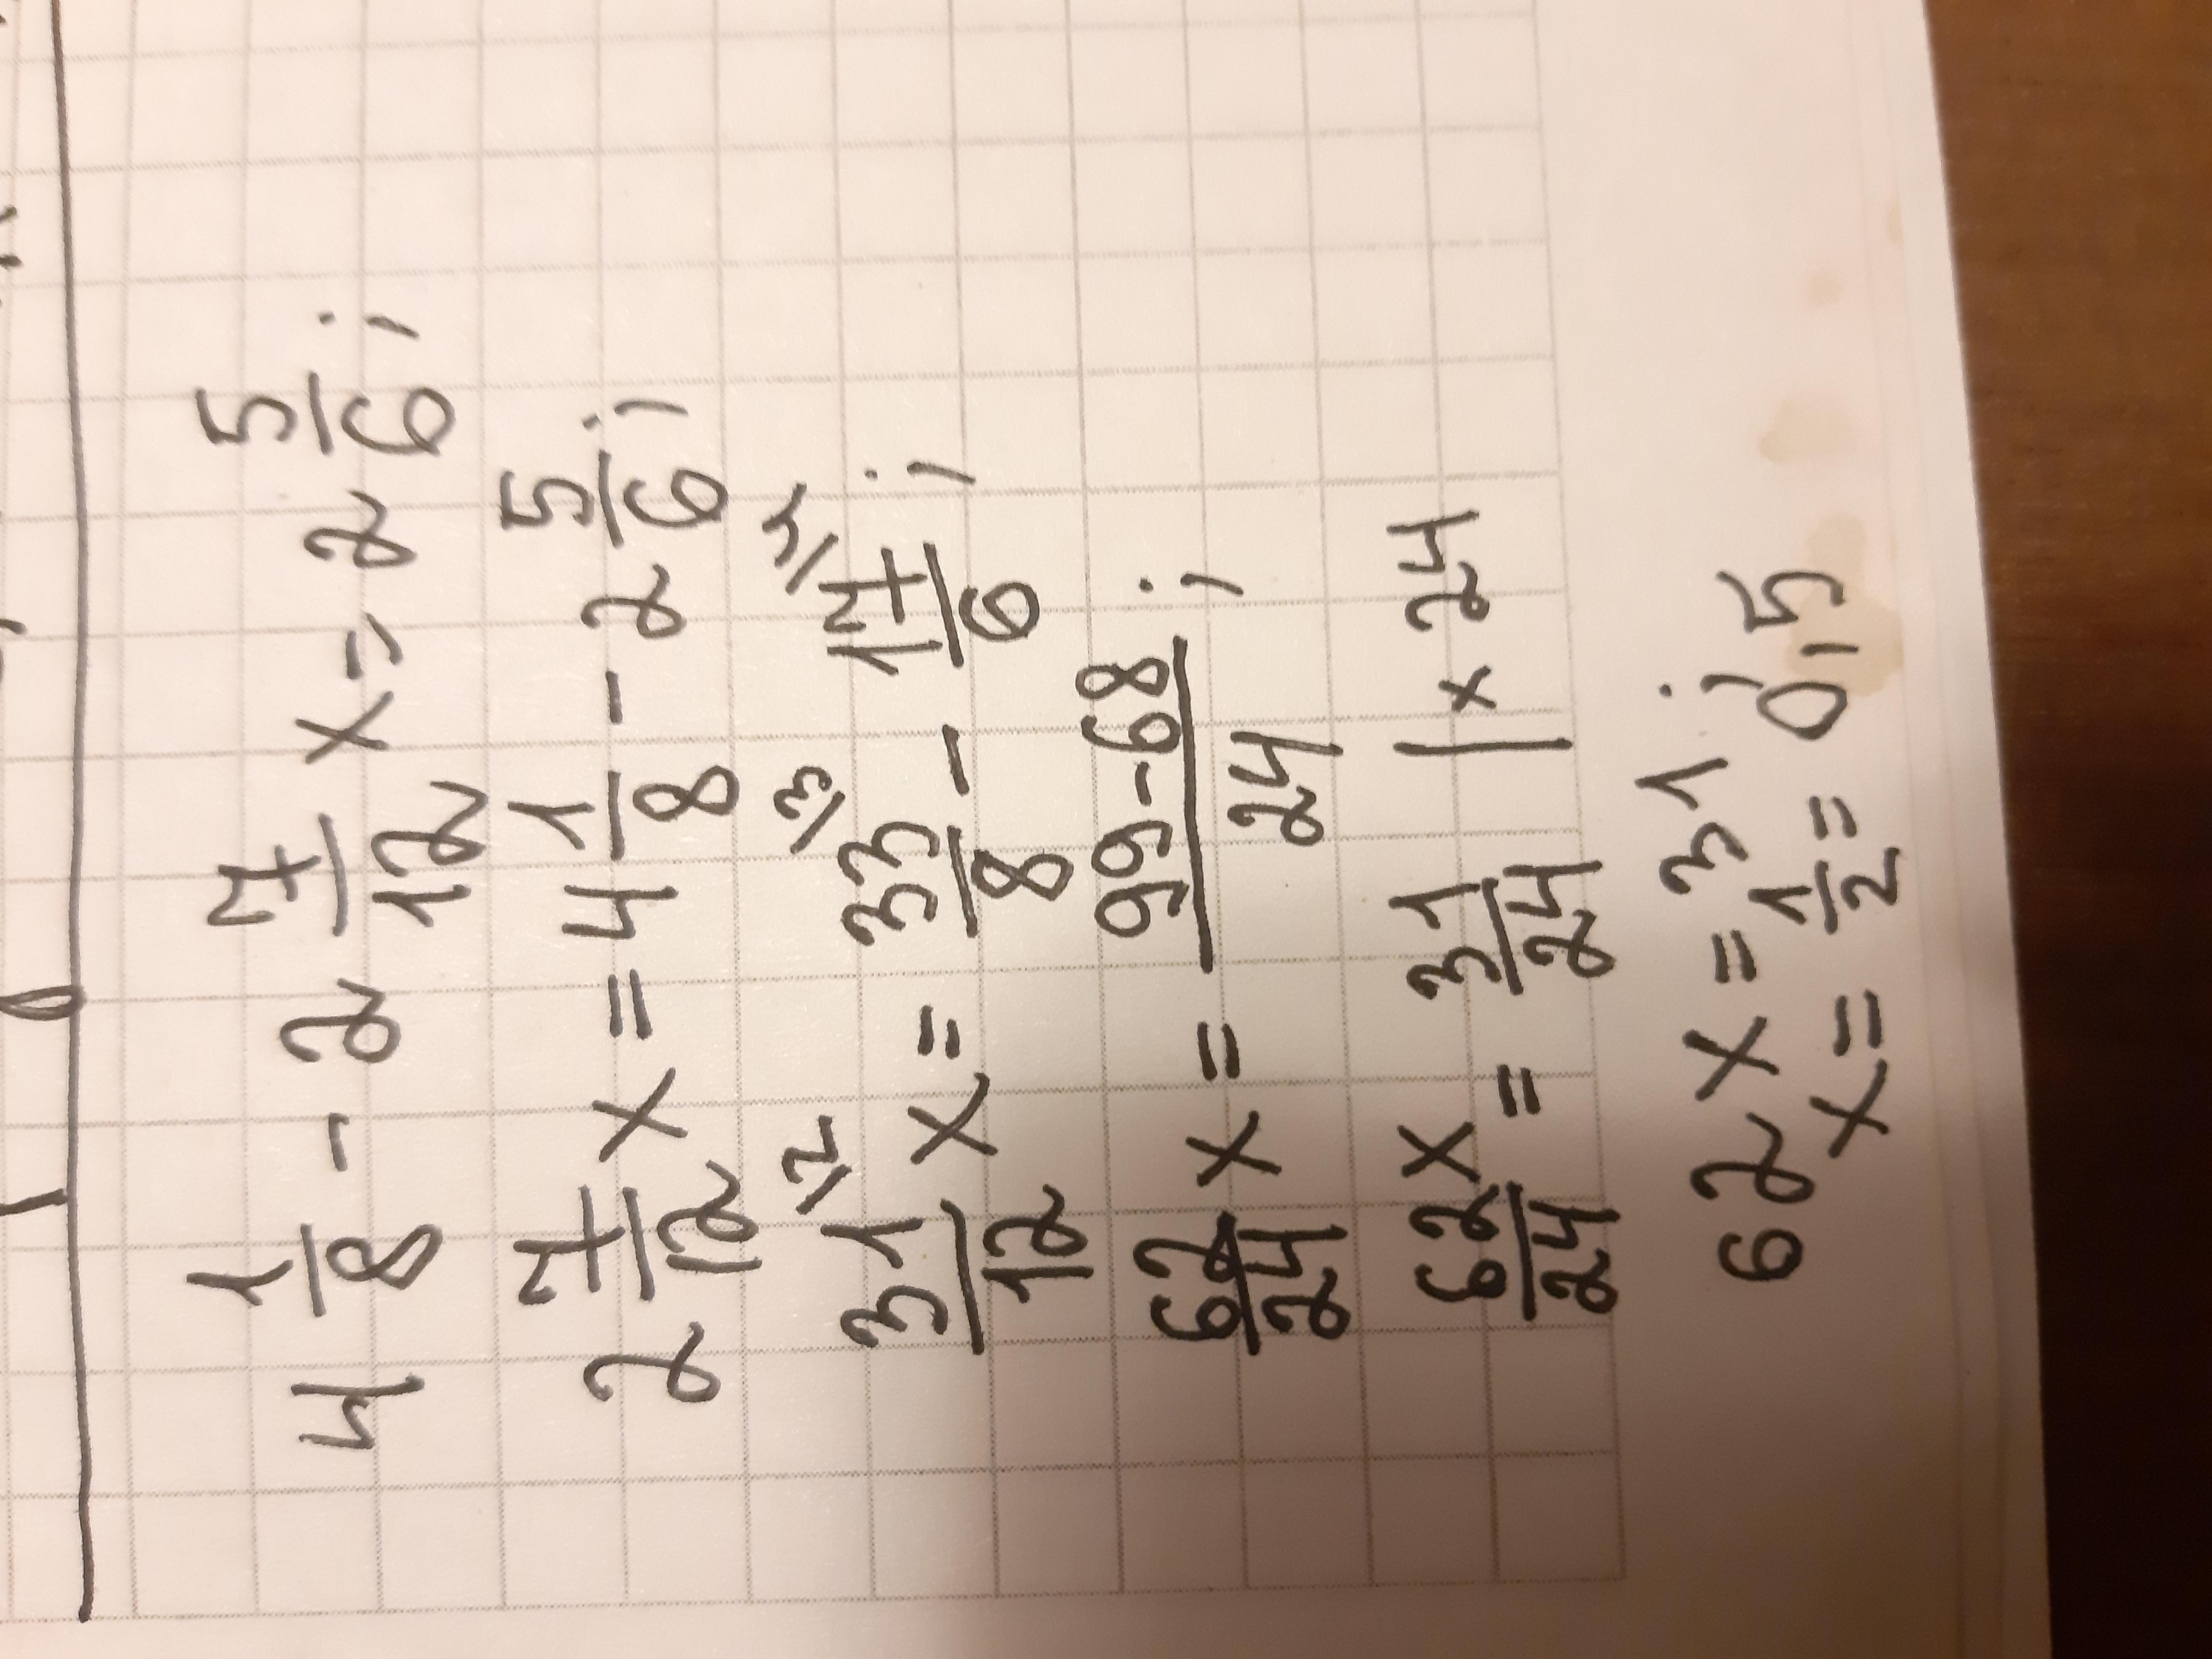 4 1/8 - 2 7/12 x = 2 5/6;
2 7/12 x = 4 1/8 - 2 5/6;
31/12 /2 x = 33/8 /3 - 17/6 /4;
62/24 x = 99-68/24;
62x/24 = 31/24 | x 24
62 x = 31;
x = 1/2 = 0,5